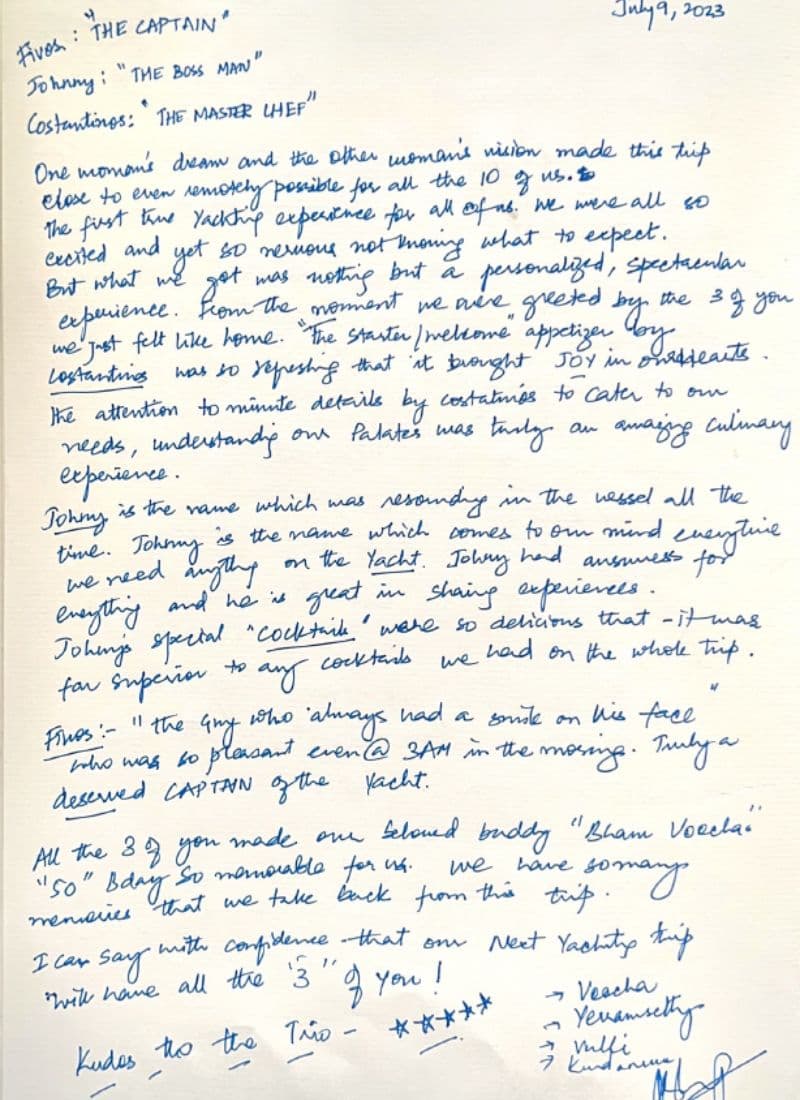 July 9, 2023
Fivos: "THE CAPTAIN"
Johnny: "THE BOSS MAN"
Costantinos: "THE MASTER CHEF"
One woman's dream and the other woman's vision made this trip
close to even remotely possible for all the 10 of us.
The first time Yachting experience for all of us. We were all so
excited and yet so nervous not knowing what to expect.
But what we got was nothing but a personalized, spectacular
experience. From the moment we were greeted by the 3 of you
we just felt like home. "The starter/welcome" appetizer by
Costantinos was so refreshing that it brought JOY in our hearts.
The attention to minute details by costatinos to cater to our
needs, understanding our Palates was truly an amazing culinary
experience.
Johnny is the name which was resounding in the vessel all the
time. Johnny is the name which comes to our mind everytime
we need anything on the Yacht. Johny had answers for
everything and he is great in sharing experiences.
Johnny's special "cocktails" were so delicious that - it was
far superior to any cocktails we had on the whole trip.
Fivos:- "The Guy who always had a smile on his face"
who was so pleasant even @ 3AM in the morning. Truly a
deserved CAPTAIN of the Yacht.
All the 3 of you made our beloved buddy "Bham Voocha"
"50" Bday so memorable for us. We have so many
memories that we take back from this trip.
I can say with confidence that our Next Yachting trip
will have all the "3" of you!
Kudos to the Trio - ★★★★★
→ Voocha
→ Yerramsetty
→ Vulli
→